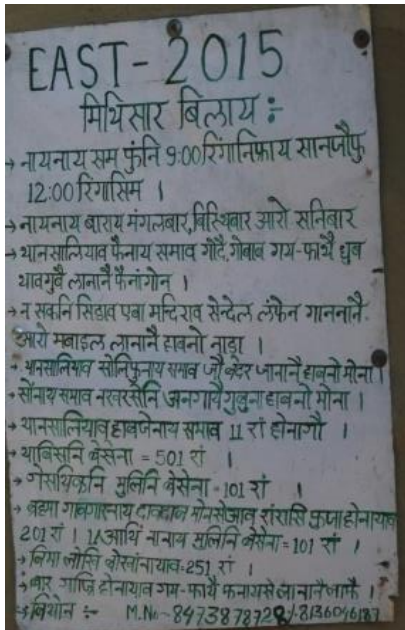 EAST-2015
मिथिसार बिलाय :-
→ नायनाय सम फुंनि 9:00 रिंगानिफ्राय सानजौफु
12:00 रिंगासिम ।
→ नायनाय बाराय मंगलबार, बिस्थिबार आरो सनिबार
→ थानसालियाव फैनाय समाव गौदै, गोबाब गय-फाथै धुब
थावगुवै लानानै फैनांगोन ।
→ न सकनि सिङाव एबा मन्दिराव सेन्देल लंफेन गाननानै
आरो मबाइल लानानै हाबनो नाङा ।
→ थानसालियाव सोनिफुनाय समाव जौ बेदर जानानै हाबनो मोना ।
→ सोंनाय समाव नखरसेनि अनगायै गुबुना हाबनो मोना ।
→ थानसालियाव हाबजेनाय समाव 11 रां होनागौ ।
→ थाबिसनि बेसेना = 501 रां ।
→ गेसथिकनि मुलिनि बेसेना - 101 रां ।
→ ब्रहमा शंरासि फुजा होनायाव
201 रां । मुलिनि बेसेना = 101 रां ।
→ बिमा 251 रां ।
→ बार होनायाव गय-फाथै जानानै जाफै ।
→ बिथोन :- M.No- 8473878728/8136046187